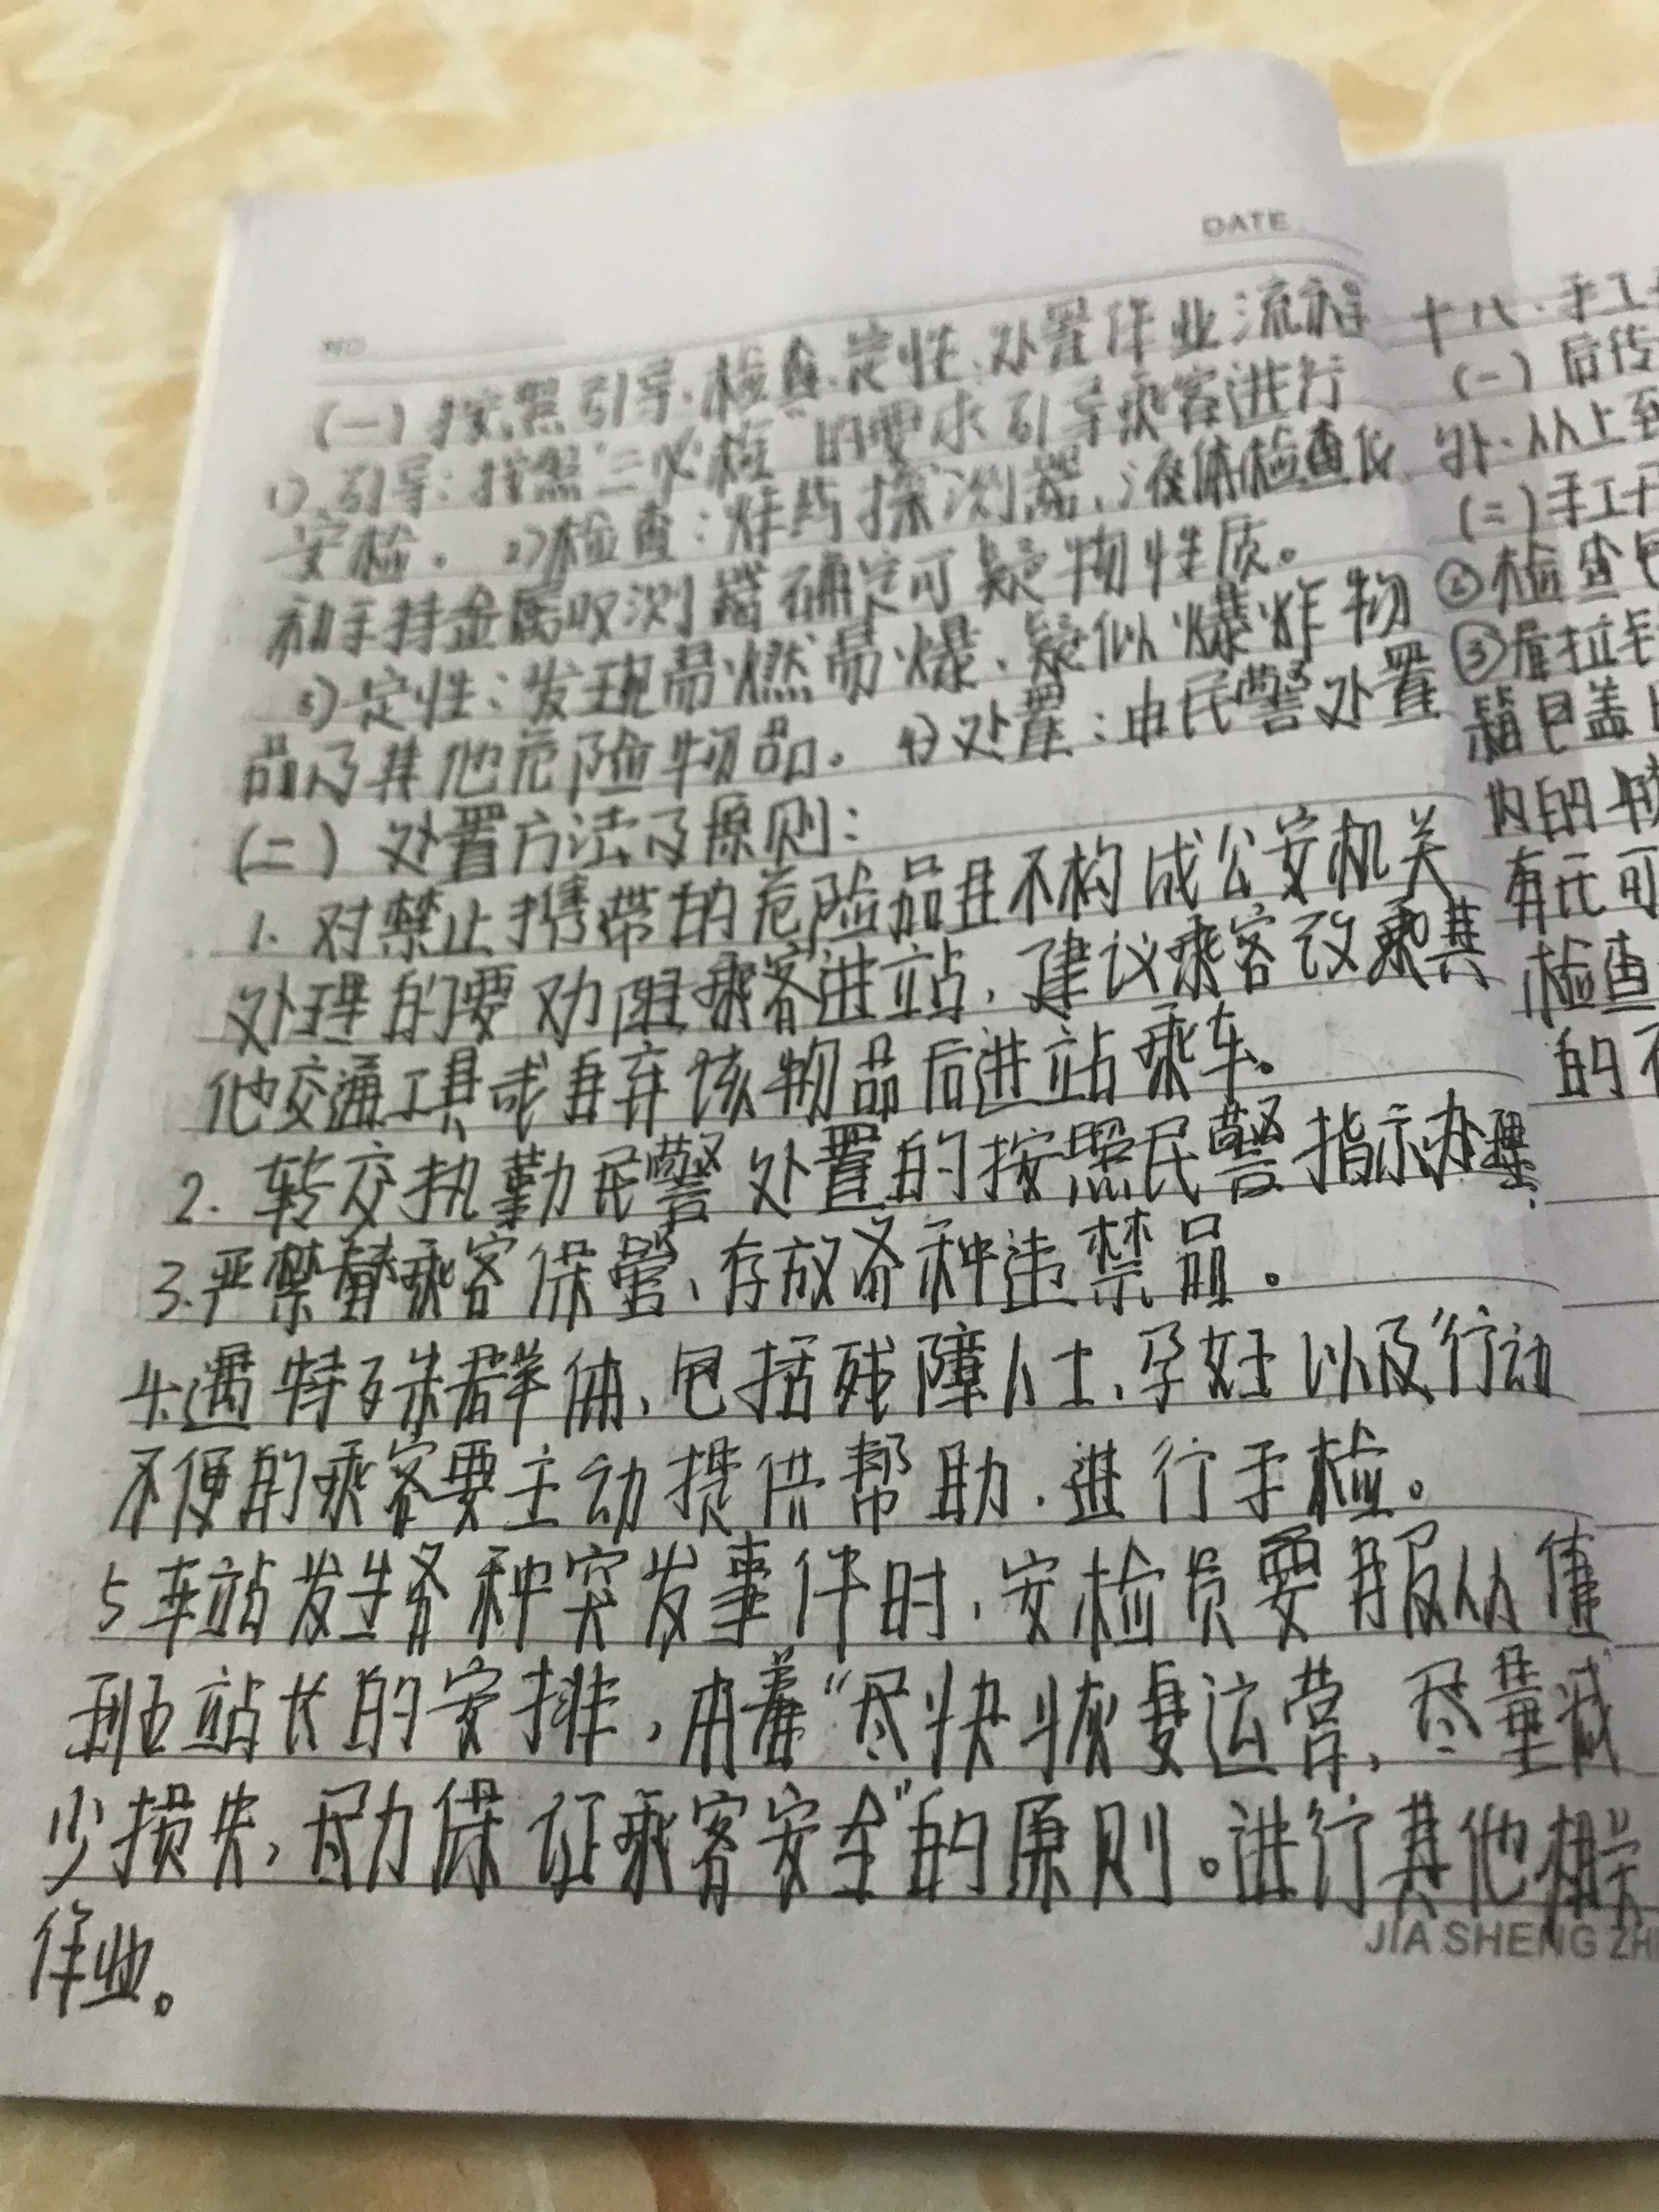 DATE
NO
(一)按照引导、检查、定性、处置作业流程
1)、引导：按照"三必检"的要求引导乘客进行
安检。 2)检查：炸药探测器、液体检查仪
和手持金属收测器确定可疑物性质。
3)定性：发现易燃易爆、疑似爆炸物
品及其他危险物品。 4)处置：由民警处置
(二) 处置方法及原则：
1. 对禁止携带的危险品且不构成公安机关
处理的要劝阻乘客进站，建议乘客改乘其
他交通工具或自弃该物品后进站乘车。
2. 转交执勤民警处置的按照民警指示办理.
3.严禁替乘客保管、存放各种违禁品。
4.遇特殊群体，包括残障人士、孕妇以及行动
不便的乘客要主动提供帮助，进行手检。
5 车站发生各种突发事件时，安检员要服从值
班站长的安排，本着"尽快恢复运营，尽量减
少损失，尽力保证乘客安全"的原则。进行其他相关
作业。
JIA SHENG ZH
十八、手工
(一) 后传
外、从上到
(二)手工开
②检查包
③
箱包盖
内的
有无可
检查
的不